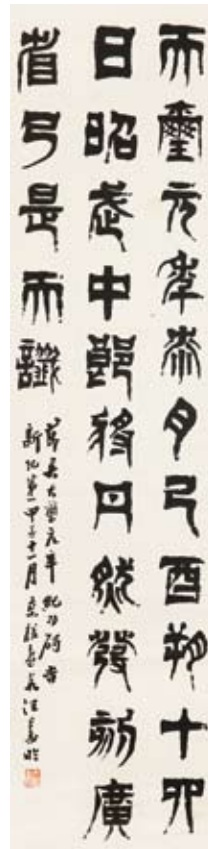 天璽元年桼月己酉朔十四
日昭武中郎將丹然發刻廣
省弓是天讖
節吳天璽元年紀功碑字
新紀第一甲子十一月